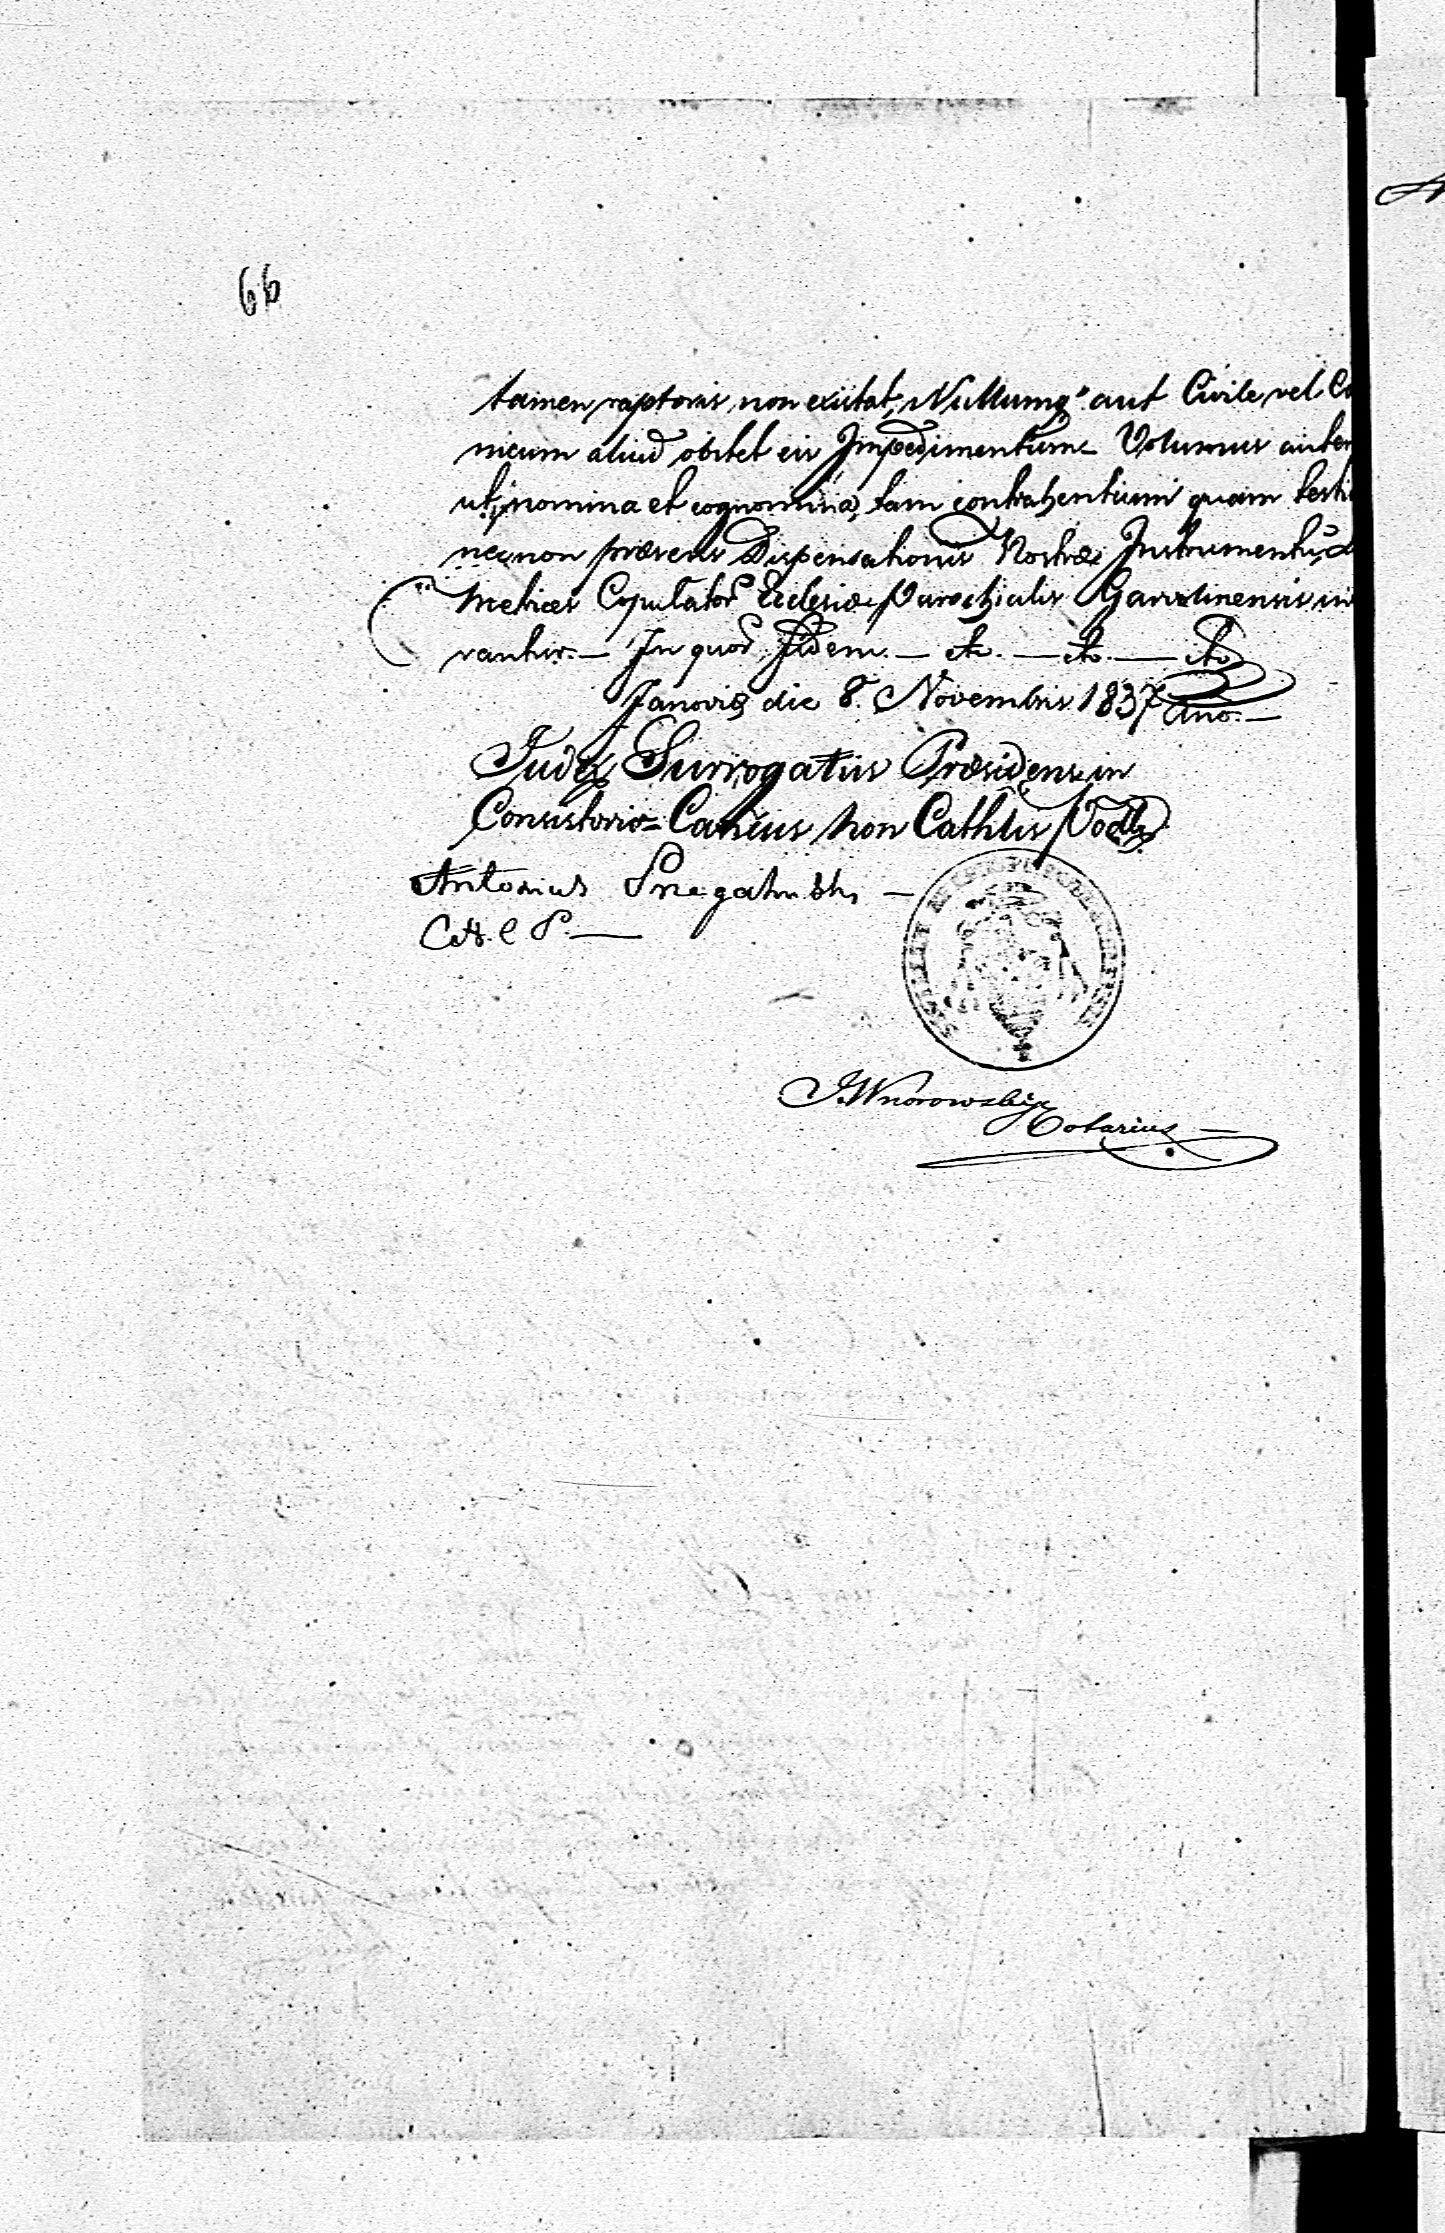 66
tamen raptoris, non existat, Nullumq. aut Civile vel Ca
nicum aliud obstet eis Impedimentum. Volumus autem
ut, nomina et cognomina, tam contrahentium quam testi
necnon præsens Dispensationis Nostræ Instrumentũ, ad
Metrices Copulator Ecclesiæ Parochialis Garvolinensis in
rantur. — In quor Fidem. — etc. — etc. — etc
Janoviæ die 8. Novembris 1837 Ano. —
Judex Surrogatus Præsidens in
Consistorio Canĉus non Cathlis Podl
Antonius —
J. Wnorowski
Notarius —